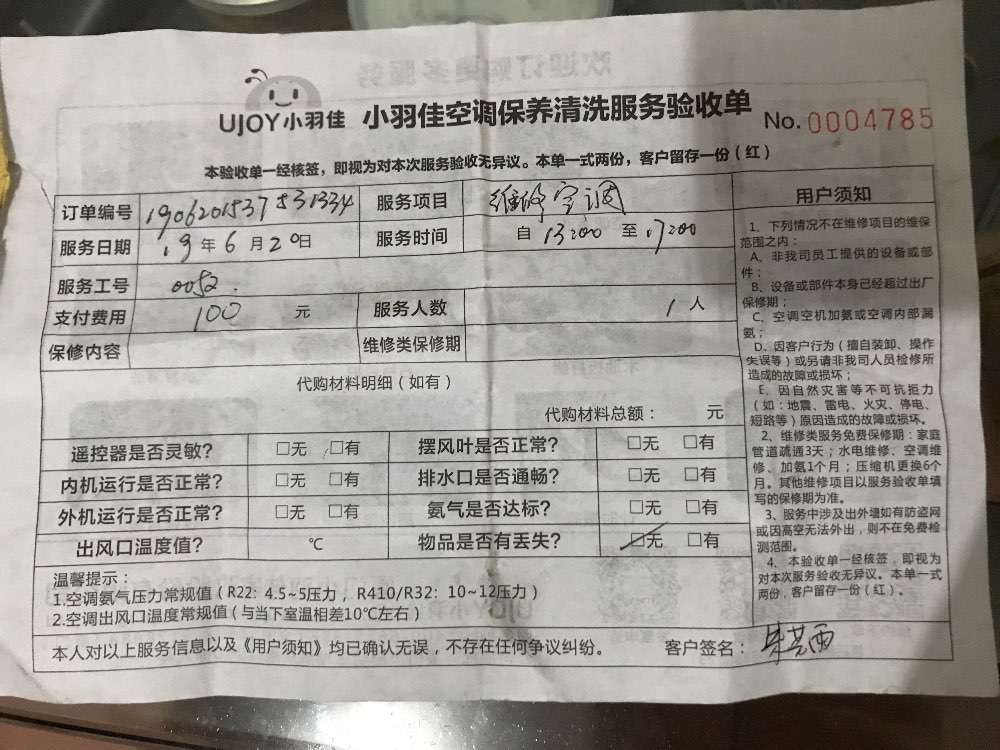 UJOY小羽佳 小羽佳空调保养清洗服务验收单 No.0004785
本验收单一经核签，即视为对本次服务验收无异议。本单一式两份，客户留存一份（红）
订单编号 1906201537831334 服务项目 维修空调
服务日期 19年6月20日 服务时间 自 13:00 至 17:00
服务工号 0052.
支付费用 100 元 服务人数 1人
保修内容 维修类保修期
代购材料明细（如有）
代购材料总额： 元
遥控器是否灵敏？ □无 □有 摆风叶是否正常？ □无 □有
内机运行是否正常？ □无 □有 排水口是否通畅？ □无 □有
外机运行是否正常？ □无 □有 氨气是否达标？ □无 □有
出风口温度值？ ℃ 物品是否有丢失？ □无 □有
温馨提示：
1.空调氨气压力常规值（R22：4.5~5压力，R410/R32：10~12压力）
2.空调出风口温度常规值（与当下室温相差10℃左右）
本人对以上服务信息以及《用户须知》均已确认无误，不存在任何争议纠纷。 客户签名：
用户须知
1、下列情况不在维修项目的维保
范围之内：
A、非我司员工提供的设备或部
件；
B、设备或部件本身已经超过出厂
保修期；
C、空调空机加氨或空调内部漏
氨；
D、因客户行为（擅自装卸、操作
失误等）或另请非我司人员检修所
造成的故障或损坏；
E、因自然灾害等不可抗拒力
（如：地震、雷电、火灾、停电、
短路等）原因造成的故障或损坏。
2、维修类服务免费保修期：家庭
管道疏通3天；水电维修、空调维
修、加氨1个月；压缩机更换6个
月。其他维修项目以服务验收单填
写的保修期为准。
3、服务中涉及出外墙如有防盗网
或因高空无法外出，则不在免费检
测范围。
4、本验收单一经核签，即视为
对本次服务验收无异议。本单一式
两份，客户留存一份（红）。